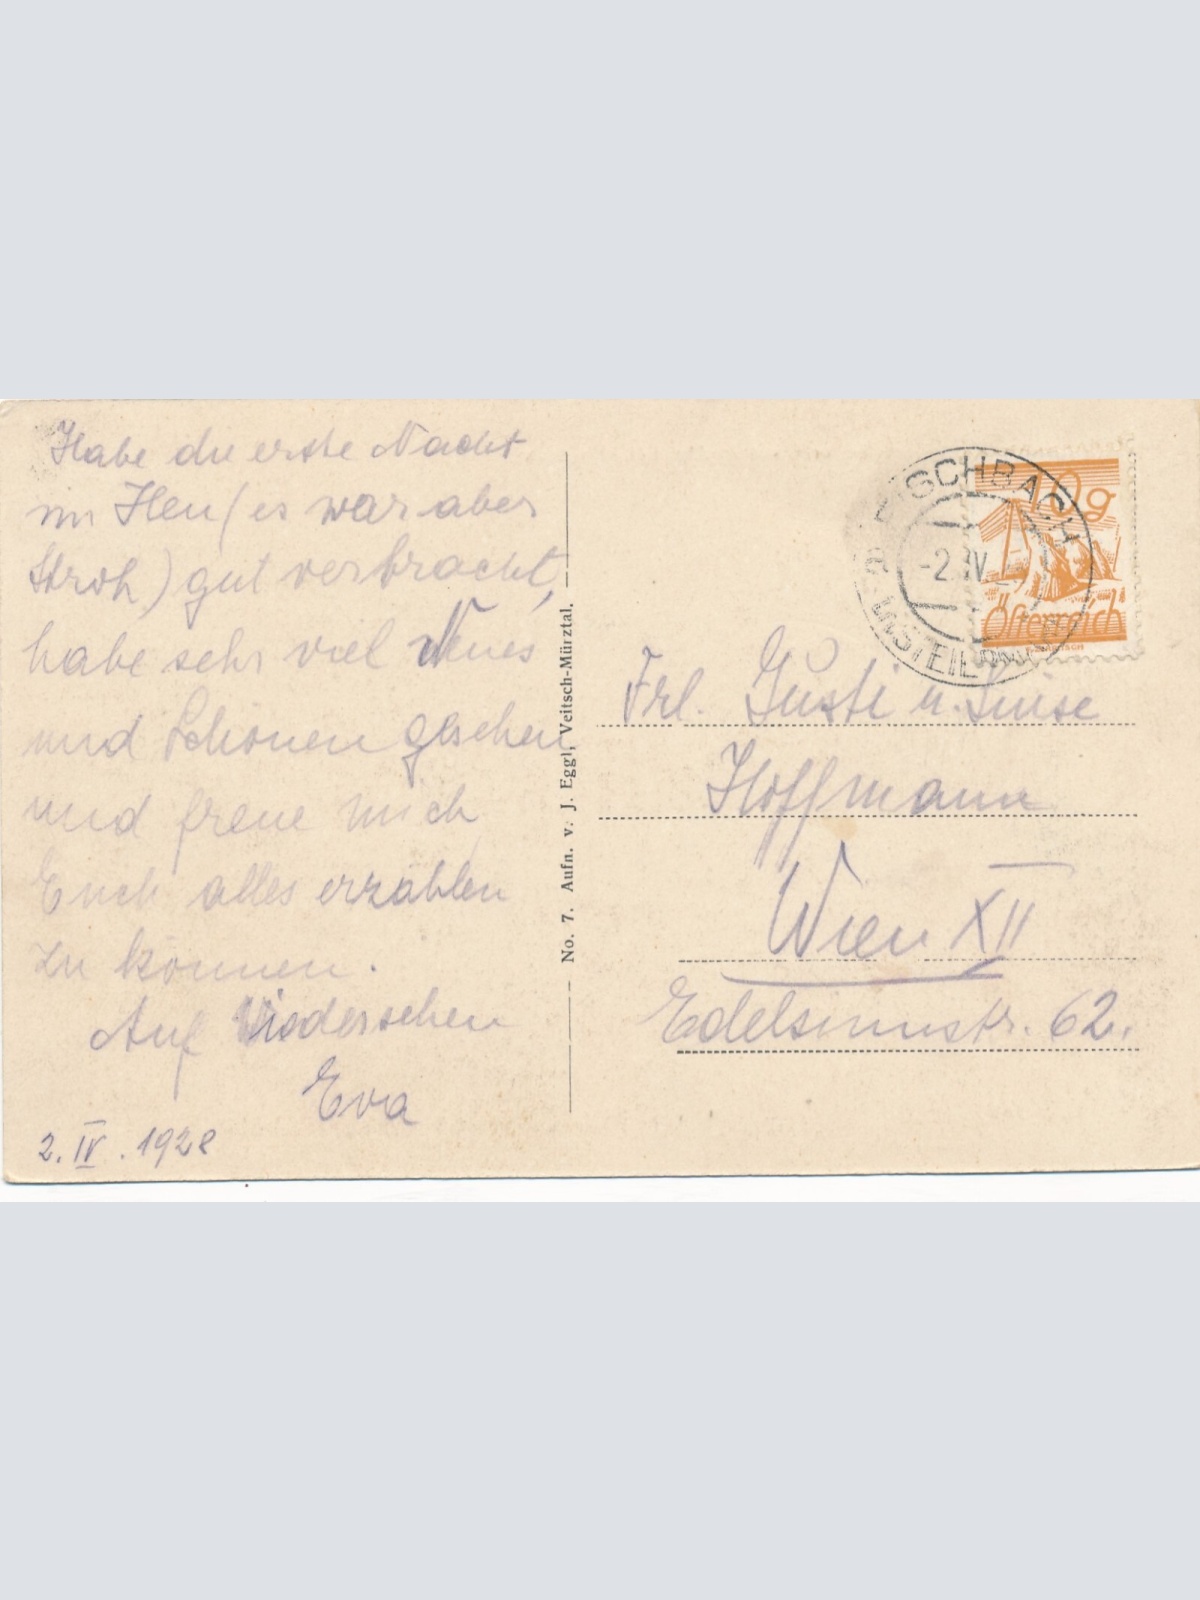 Habe die erste Nacht
im Heu (es war aber
Stroh) gut verbracht,
habe sehr viel Neues
und Schönen gesehen
und freue mich
Euch alles erzählen
zu können.
Auf Wiedersehen
Eva
2. IV. 1928
No. 7. Aufn. v. J. Eggl, Veitsch-Mürztal.
10g
Österreich
-2. IV
Frl. Gusti u. Luise
Hoffmann
Wien XII
Edelsinnstr. 62.